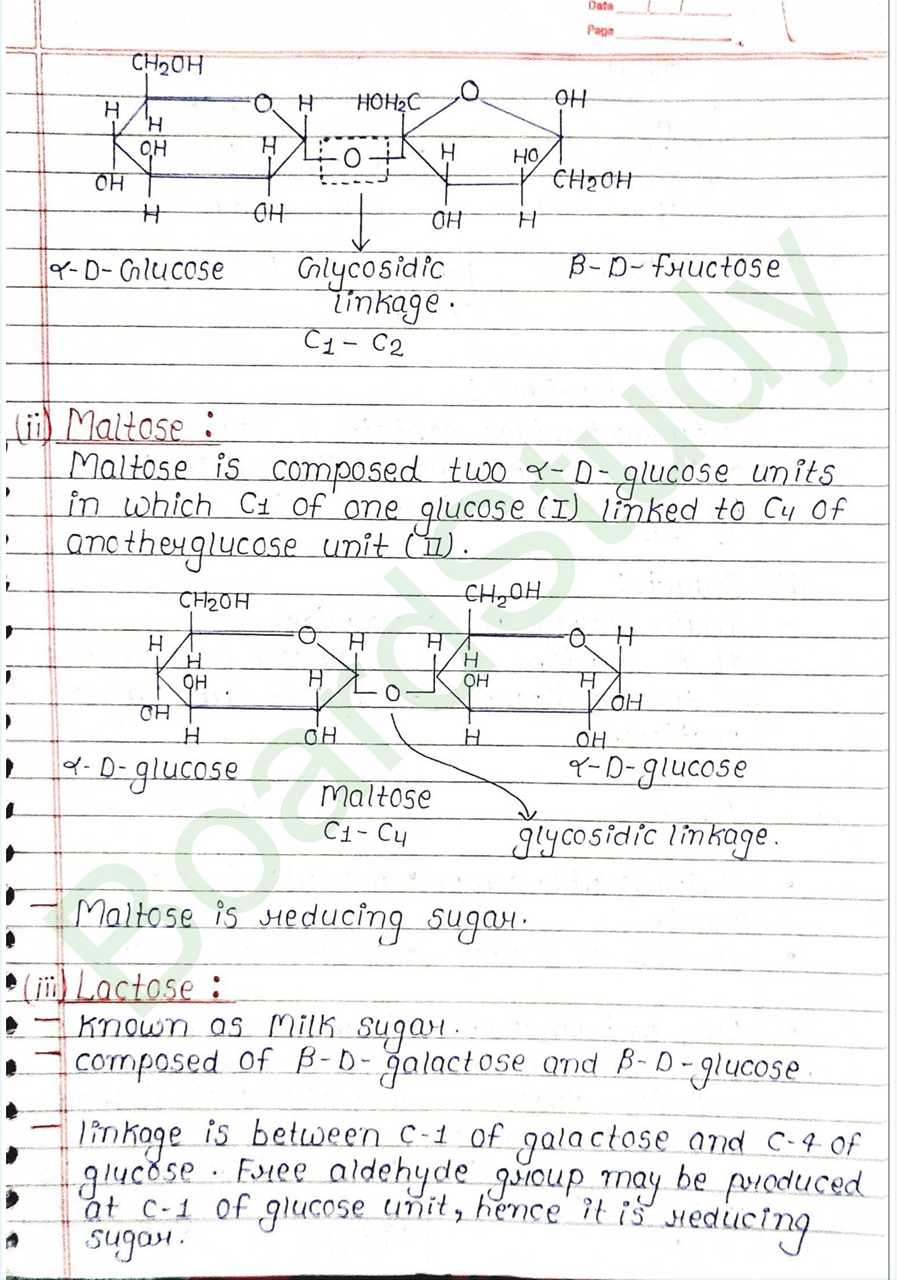 Date
Page
CH2OH
H O H HOH2C O OH
H
OH H O H HO
OH CH2OH
H OH OH H
α-D-Glucose Glycosidic β-D-fructose
linkage.
C1 - C2
(ii) Maltose :
Maltose is composed two α-D-glucose units
in which C1 of one glucose (I) linked to C4 of
anotherglucose unit (II).
CH2OH CH2OH
H O H H O H
H H
OH H O OH H OH
OH
H OH H OH
α-D-glucose α-D-glucose
Maltose
C1-C4 glycosidic linkage.
- Maltose is reducing sugar.
(iii) Lactose :
- Known as Milk sugar.
- composed of β-D-galactose and β-D-glucose.
- linkage is between C-1 of galactose and C-4 of
glucose. Free aldehyde group may be produced
at C-1 of glucose unit, hence it is reducing
sugar.
BoardStudy